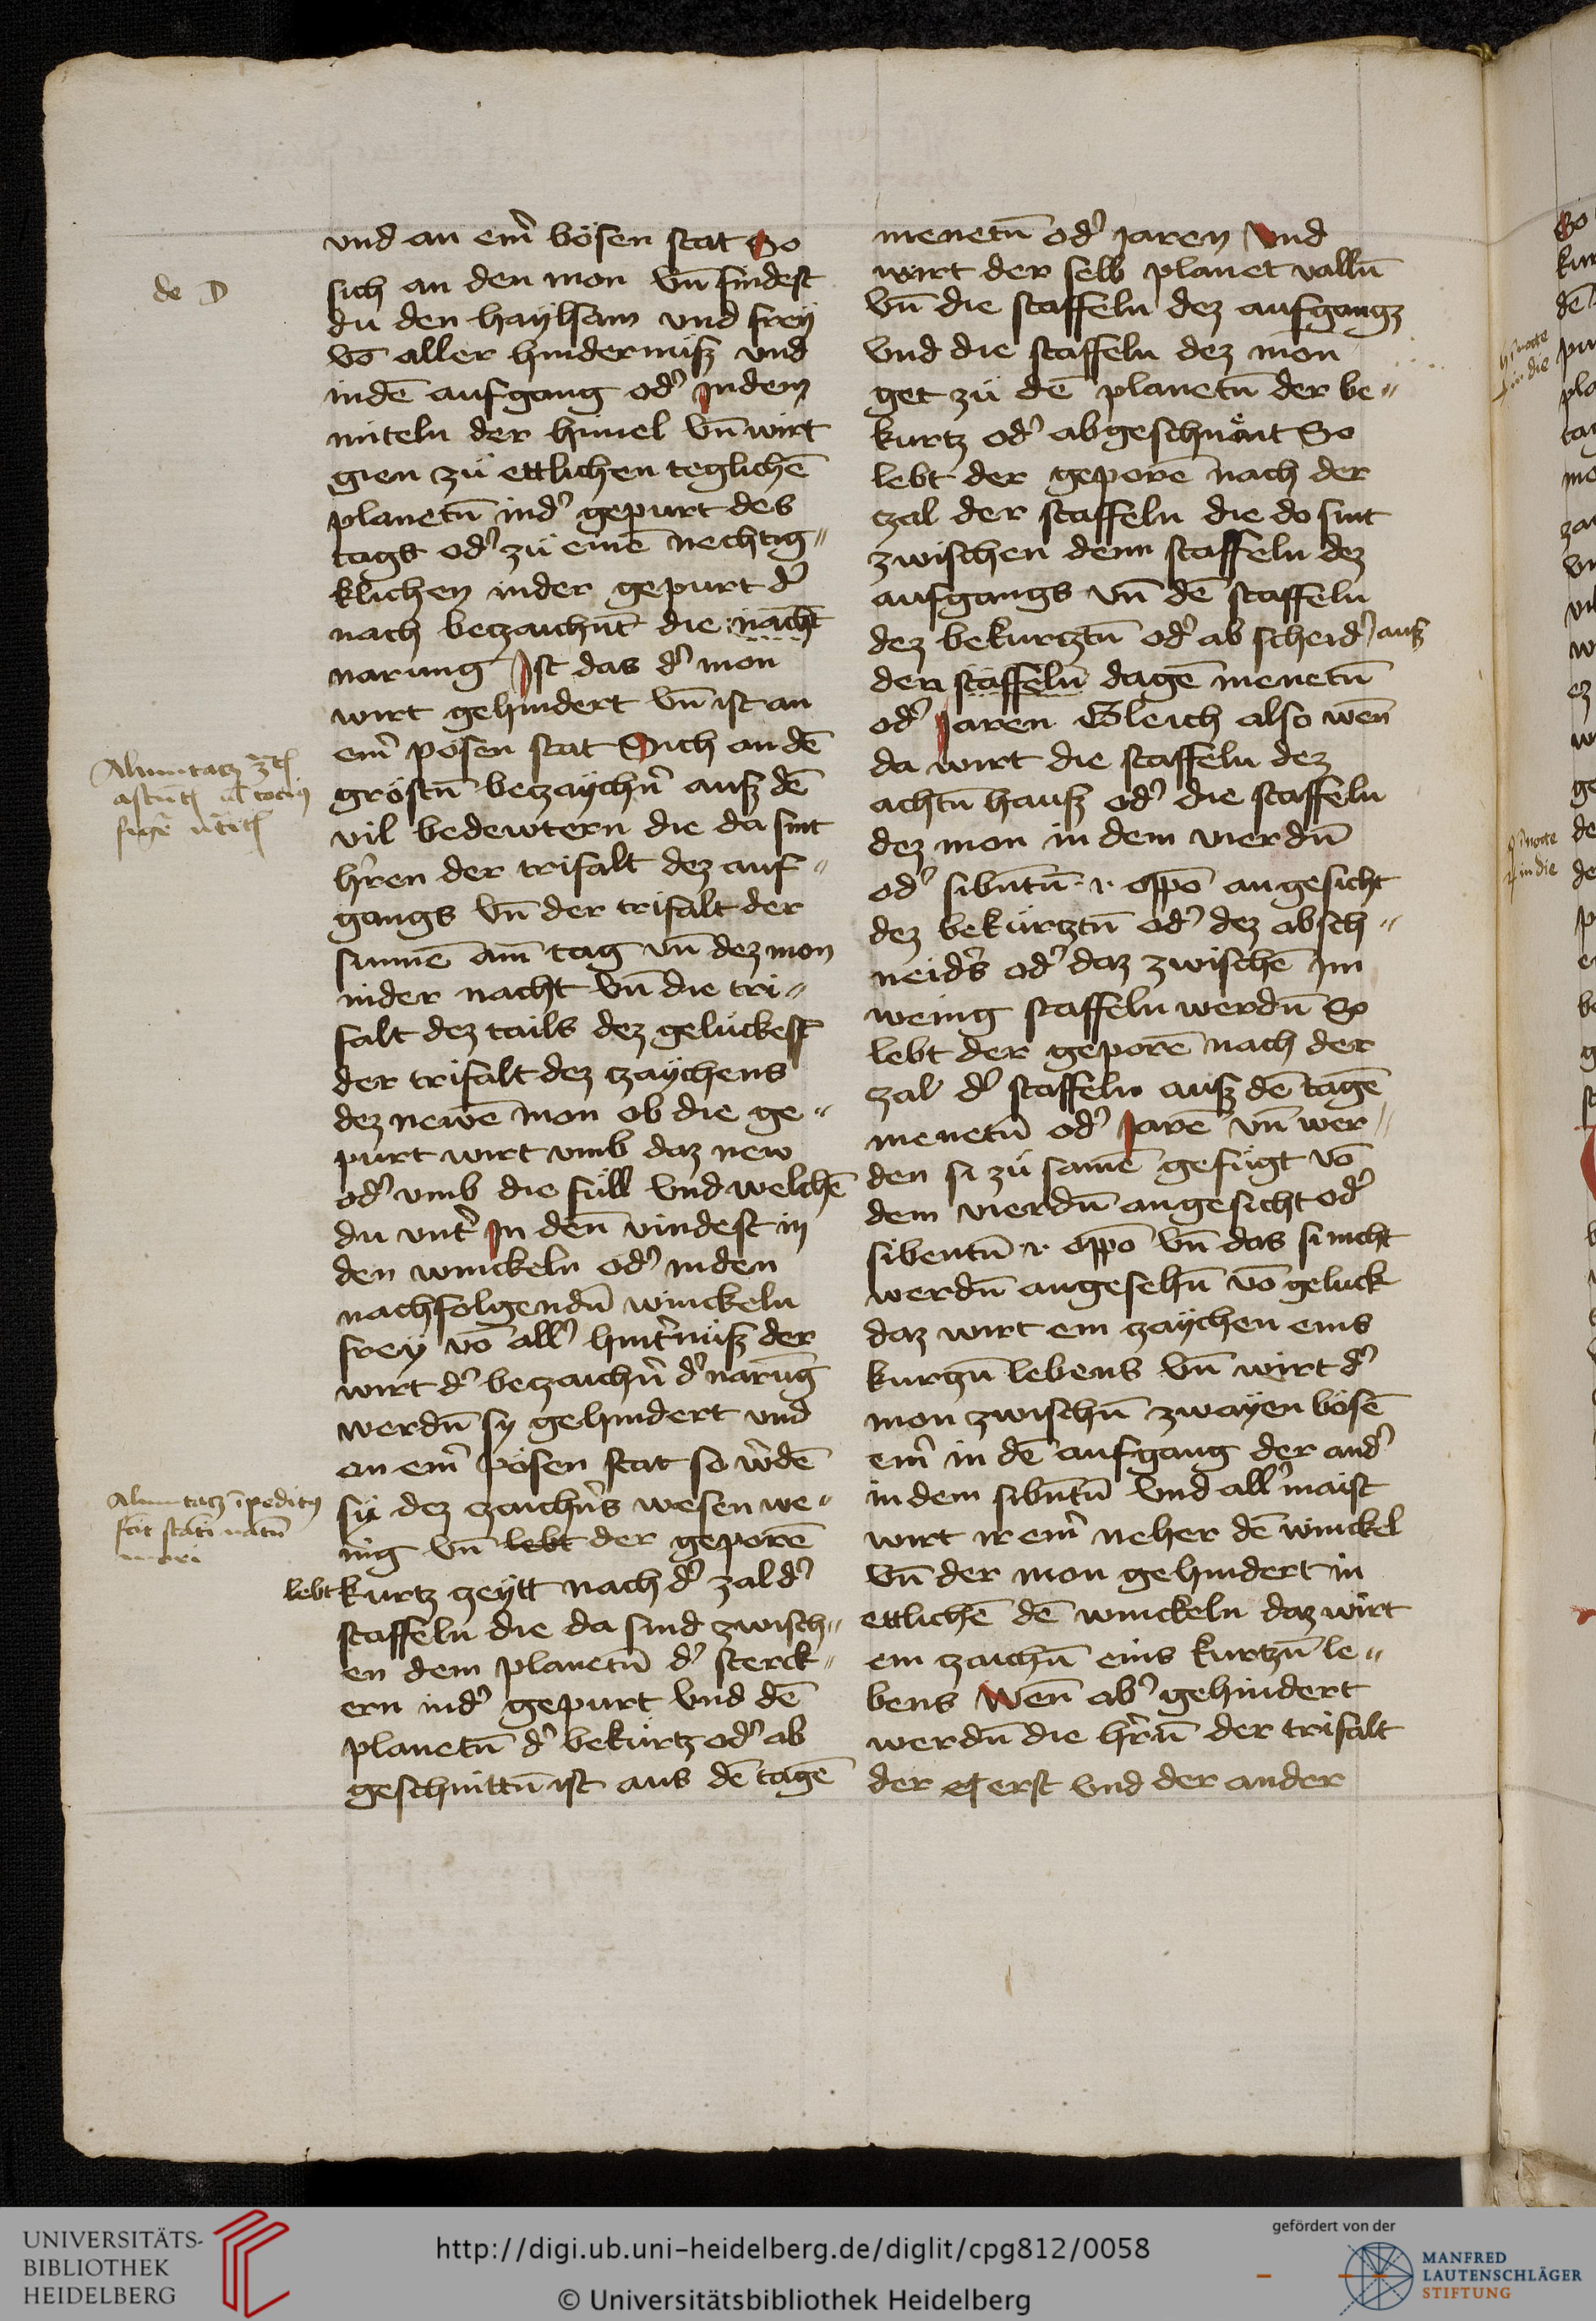 und an em̄ bösen stat So
sich an den mon vn̄ findest
du den haylsam und frey
vō aller hindernüsz und
indē aufgang od' indem
miteln der himel vn̄ wirt
gien zü ettlichen teglichē
planetn̄ ind' gepurt des
tags od' zü einē nechtig〃
klichen inder gepurt d'
nach beczaichnt die nācht
narung Ist das d' mon
wirt gehindert vn̄ ist an
em̄ pösen stat Sich an dē
gröstn̄ beczaychn̄ ausz dē
vil bedewtern die da sint
hr̄en der trifalt dez auf〃
gangs vn̄ der trifalt der
sunnē am̄ tag vn̄ dez mon
inder nacht vn̄ die tri〃
falt dez tails dez gelückesz
der trifalt dez czaychens
dez newē mon ob die ge〃
purt wirt umb daz new
od' umb die füll und welchē
du unt' in den̄ vindest in
den winckeln od' inden
nachfolgendn̄ winckeln
frey vō all' hint'nüsz der
wirt d' beczaichn̄ d' narūg
werdn̄ sy gehindert und
an em̄ pösen stat so w'dē
sy dez czaichn's wesen we〃
nig vn̄ lebt der geporē
lebt kurtz zeytt nach d' zal d'
staffeln die da sind zwisch〃
en dem planetn̄ d' sterck〃
ern ind' gepurt und dē
planetn̄ d' bekürtz od' ab
geschnittn̄ ist aus dē tagē
menetn̄ od' jaren und
wirt der selb planet valln̄
vn̄ die staffeln dez aufgangz
und die staffeln dez mon
get zü dē planetn̄ der be〃
kurtz od' abgeschnait So
lebt der geporē nach der
zal der staffeln die do sint
zwischen denn staffeln dez
aufgangs vn̄ dē staffeln
dez bekurtztn̄ od' ab scheid' ausz
den staffeln dagē menetn̄
od' jaren Gleich also wen̄
da wirt die staffeln dez
achtn̄ hausz od' die staffeln
dez mon in dem vierdn̄
od' sibntn̄ .r. oppō angesicht
dez bekürtztn̄ od' dez absch〃
neid's od' daz zwischē im
wenig staffeln werdn̄ So
lebt der geporē nach der
zal d' staffeln ausz dē tagē
menetn̄ od' jarē vn̄ wer〃
den si zü samē gefügt vō
dem vierdn̄ angesicht od'
sibentn̄ .r. oppō vn̄ das si nicht
werdn̄ angesehn̄ vō geluck
daz wirt ein zaychen eins
kurczn̄ lebens vn̄ wirt d'
mon zwischn̄ zwayen bösē
em̄ in dē aufgang der and'
in dem sibntn̄ und all' maist
wirt ir em̄ neher dē winckel
vn̄ der mon gehindert in
ettlichē dē winckeln daz wirt
ein zaichn̄ eins kurtzn̄ le〃
bens wen̄ ab' gehindert
werdn̄ die hr̄n̄ der trifalt
der erst und der ander
de D
UNIVERSITÄTS-
BIBLIOTHEK
HEIDELBERG
http://digi.ub.uni-heidelberg.de/diglit/cpg812/0058
© Universitätsbibliothek Heidelberg
gefördert von der
MANFRED
LAUTENSCHLÄGER
STIFTUNG